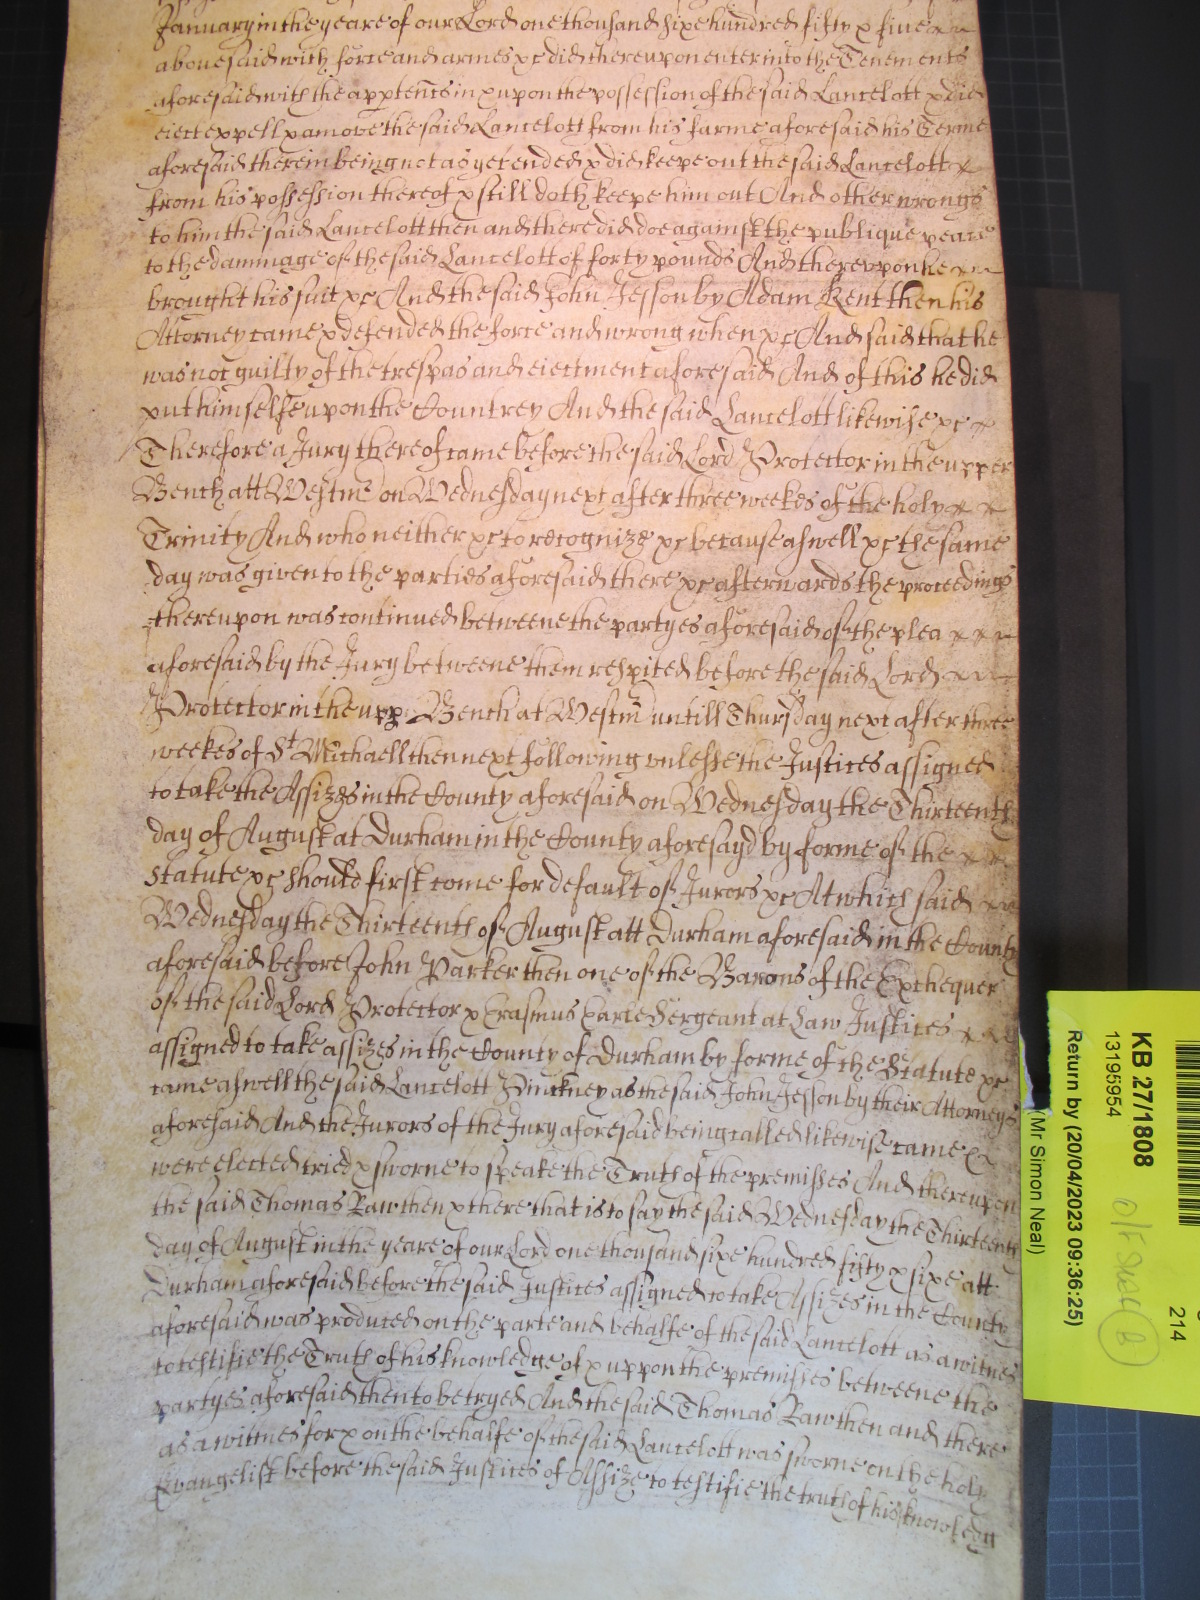 January in the yeare of our Lord one thousand sixe hundred fifty & five
abovesaid with force and armes &c did thereupon enter into the Tenements
aforesaid with the apptenñces in & upon the possession of the said Lancelott & did
eiect expell & amove the said Lancelott from his farme aforesaid his Terme
aforesaid therein being not as yet ended & did keepe out the said Lancelott
from his possession thereof & still doth keepe him out And other wrongs
to him the said Lancelott then and there did doe against the publique peace
to the dammage of the said Lancelott of forty pounds And thereupon he
brought his suit &c And the said John Jesson by Adam Kent then his
Attorney came & defended the force and wrong when &c And said that he
was not guilty of the trespas and eiectment aforesaid And of this he did
put himselfe upon the Countrey And the said Lancelott likewise &c
Therefore a Jury thereof came before the said Lord Protector in the upper
Bench att Westm̃ on Wednesday next after three weekes of the holy
Trinity And who neither &c to recognize &c because aswell &c the same
day was given to the parties aforesaid there &c afterwards the proceedings
thereupon was continued betweene the partyes aforesaid of the plea
aforesaid by the Jury betweene them respited before the said Lord
Protector in the upp Bench at Westm̃ untill Thursday next after three
weekes of St Michaell then next following unlesse the Justices assigned
to take the Assizes in the County aforesaid on Wednesday the Thirteenth
day of August at Durham in the County aforesayd by forme of the
Statute &c should first come for default of Jurors &c At which said
Wednesday the Thirteenth of August att Durham aforesaid in the County
aforesaid before John Parker then one of the Barons of the Exchequer
of the said Lord Protector & Erasmus Earle Sergeant at Law Justices
assigned to take assizes in the County of Durham by forme of the Statute &c
came aswell the said Lancelott Pinckney as the said John Jesson by their Attorneys
aforesaid And the Jurors of the Jury aforesaid being called likewise came &
were elected tried & sworne to speake the Truth of the premisses And thereupon
the said Thomas Raw then & there that is to say the said Wednesday the Thirteenth
day of August in the yeare of our Lord one thousand sixe hundred fifty & sixe att
Durham aforesaid before the said Justices assigned to take Assizes in the County
aforesaid was produced on the parte and behalfe of the said Lancelott as a witnes
to testifie the Truth of his knowledge of & uppon the premisses betweene the
partyes aforesaid then to be tryed And the said Thomas Raw then and there
as a wittnes for & on the behalfe of the said Lancelott was sworne on the holy
Evangelist before the said Justices of Assize to testifie the truth of his knowledg
KB 27/1808
13195954
Return by (20/04/2023 09:36:25)
(Mr Simon Neal)
214
B